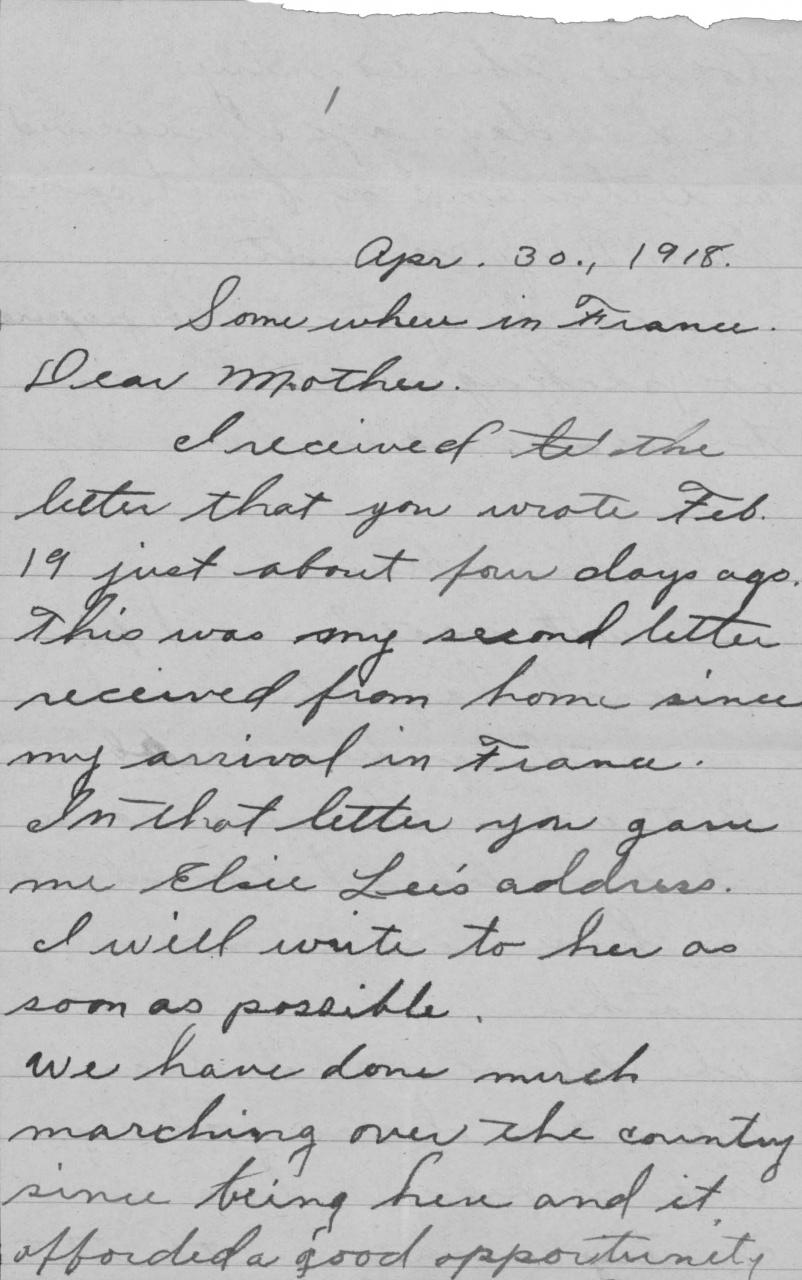 1
Apr. 30., 1918.
Some where in France.
Dear Mother.
I received the
letter that you wrote Feb.
19 just about four days ago.
This was my second letter
received from home since
my arrival in France.
In that letter you gave
me Elsie Lee's address.
I will write to her as
soon as possible.
We have done much
marching over the country
since being here and it
afforded a good opportunity